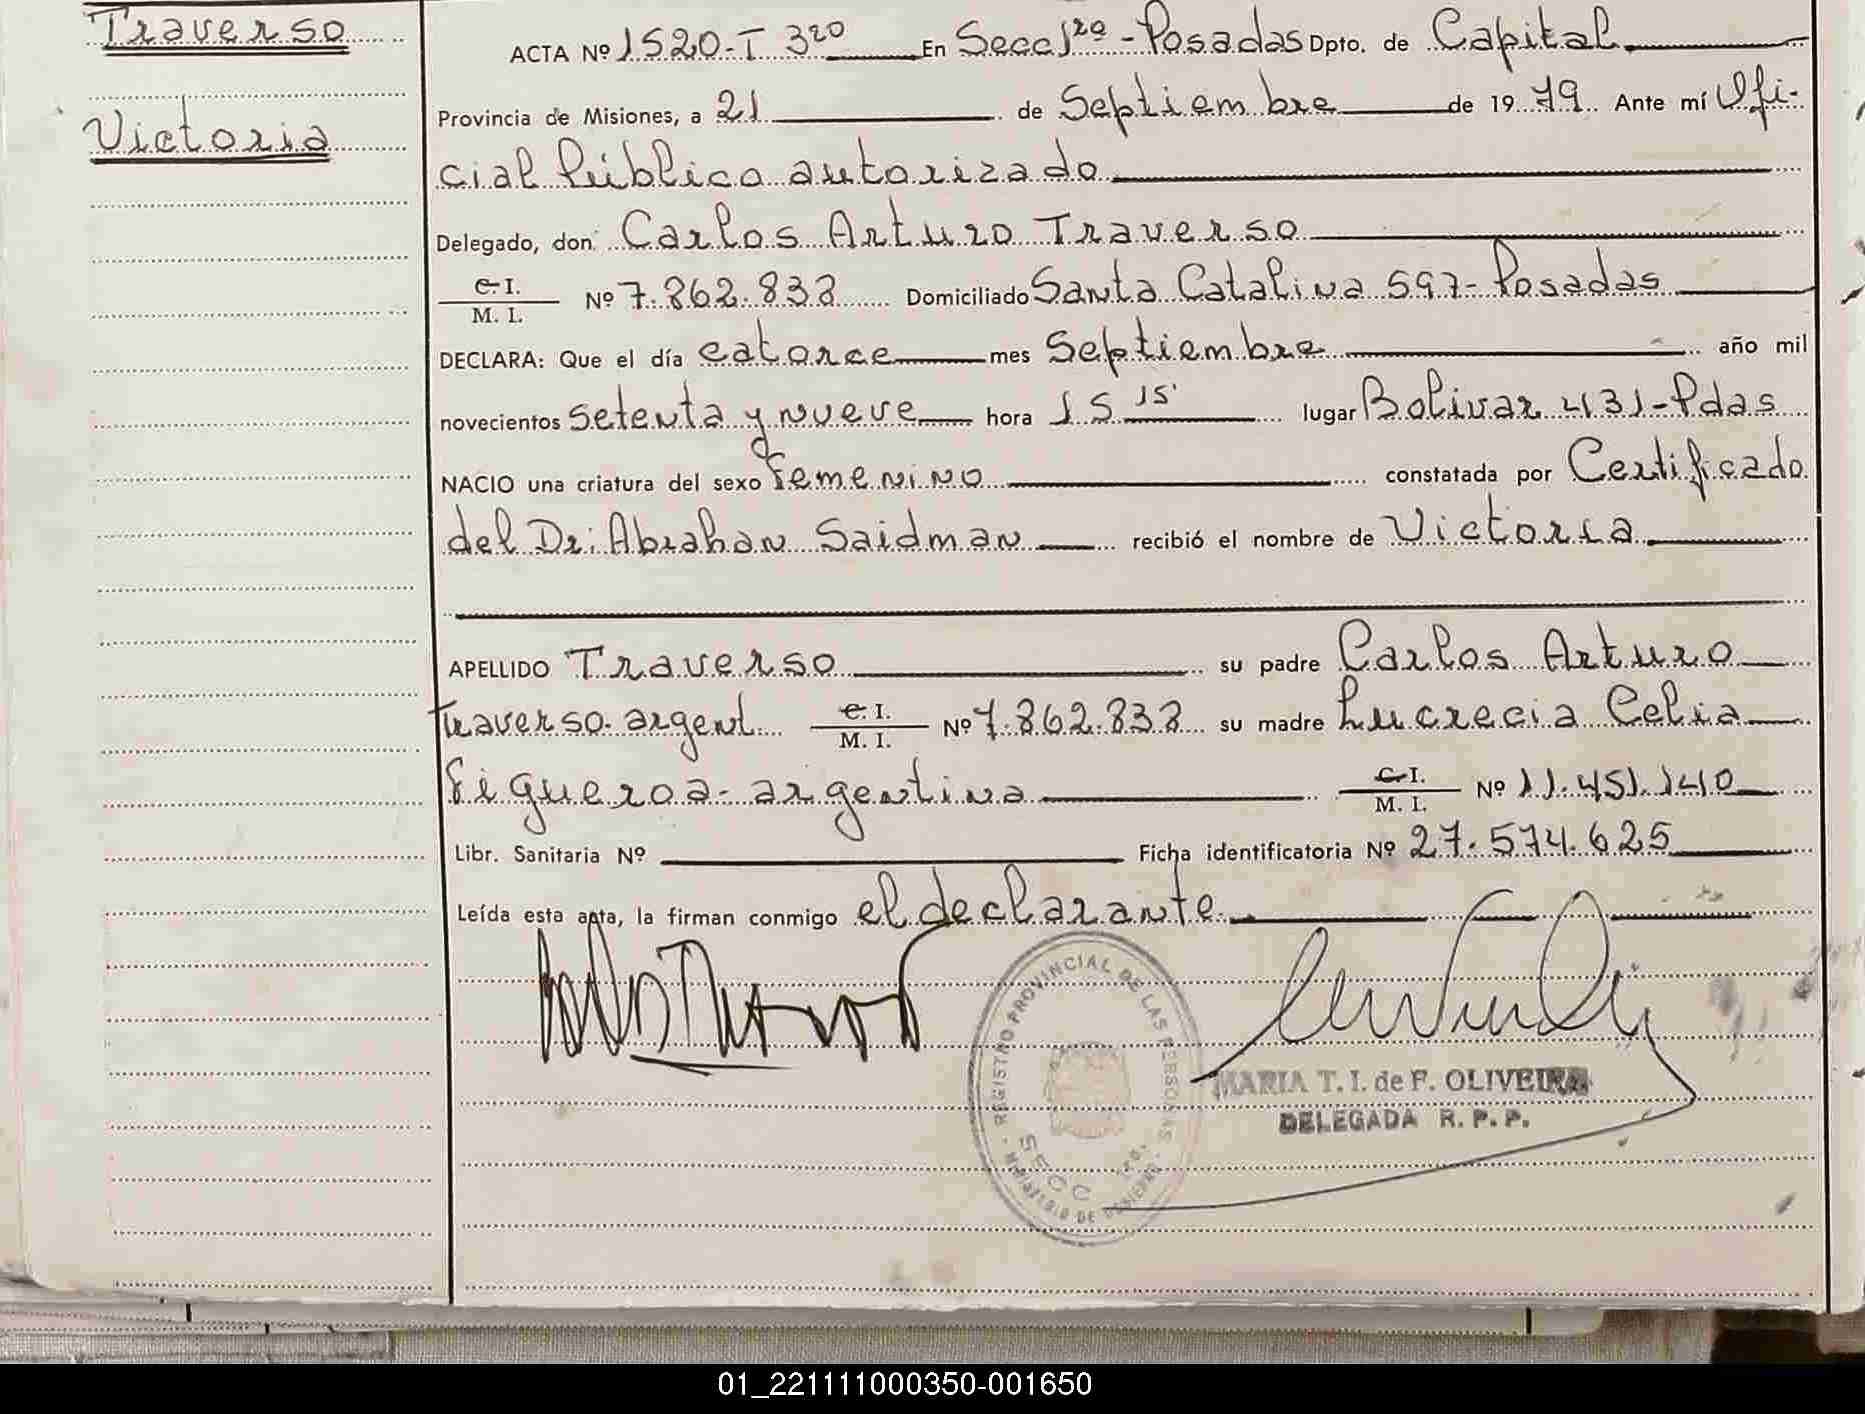 Traverso
Victoria
ACTA Nº 1520-T 3ro En Secc 1ra - Posadas Dpto. de Capital
Provincia de Misiones, a 21 de Septiembre de 1979 Ante mí Ofi-
cial Público autorizado
Delegado, don Carlos Arturo Traverso
C.I.
M. I. Nº 7.862.838 Domiciliado Santa Catalina 597 - Posadas
DECLARA: Que el día catorce mes Septiembre año mil
novecientos setenta y nueve hora 15 15' lugar Bolivar 431 - Pdas
NACIO una criatura del sexo femenino constatada por Certificado
del Dr. Abrahan Saidman recibió el nombre de Victoria
APELLIDO Traverso su padre Carlos Arturo
Traverso. argent. C. I. M. I. Nº 7.862.838 su madre Lucrecia Celia
Figueroa - argentina C.I. M. I. Nº 11.451.140
Libr. Sanitaria Nº Ficha identificatoria Nº 27.574.625
Leída esta acta, la firman conmigo el declarante
REGISTRO PROVINCIAL DE LAS PERSONAS
SECC 1ra.
MINISTERIO DE GOBIERNO
MARIA T. I. de F. OLIVEIRA
DELEGADA R. P. P.
01_221111000350-001650